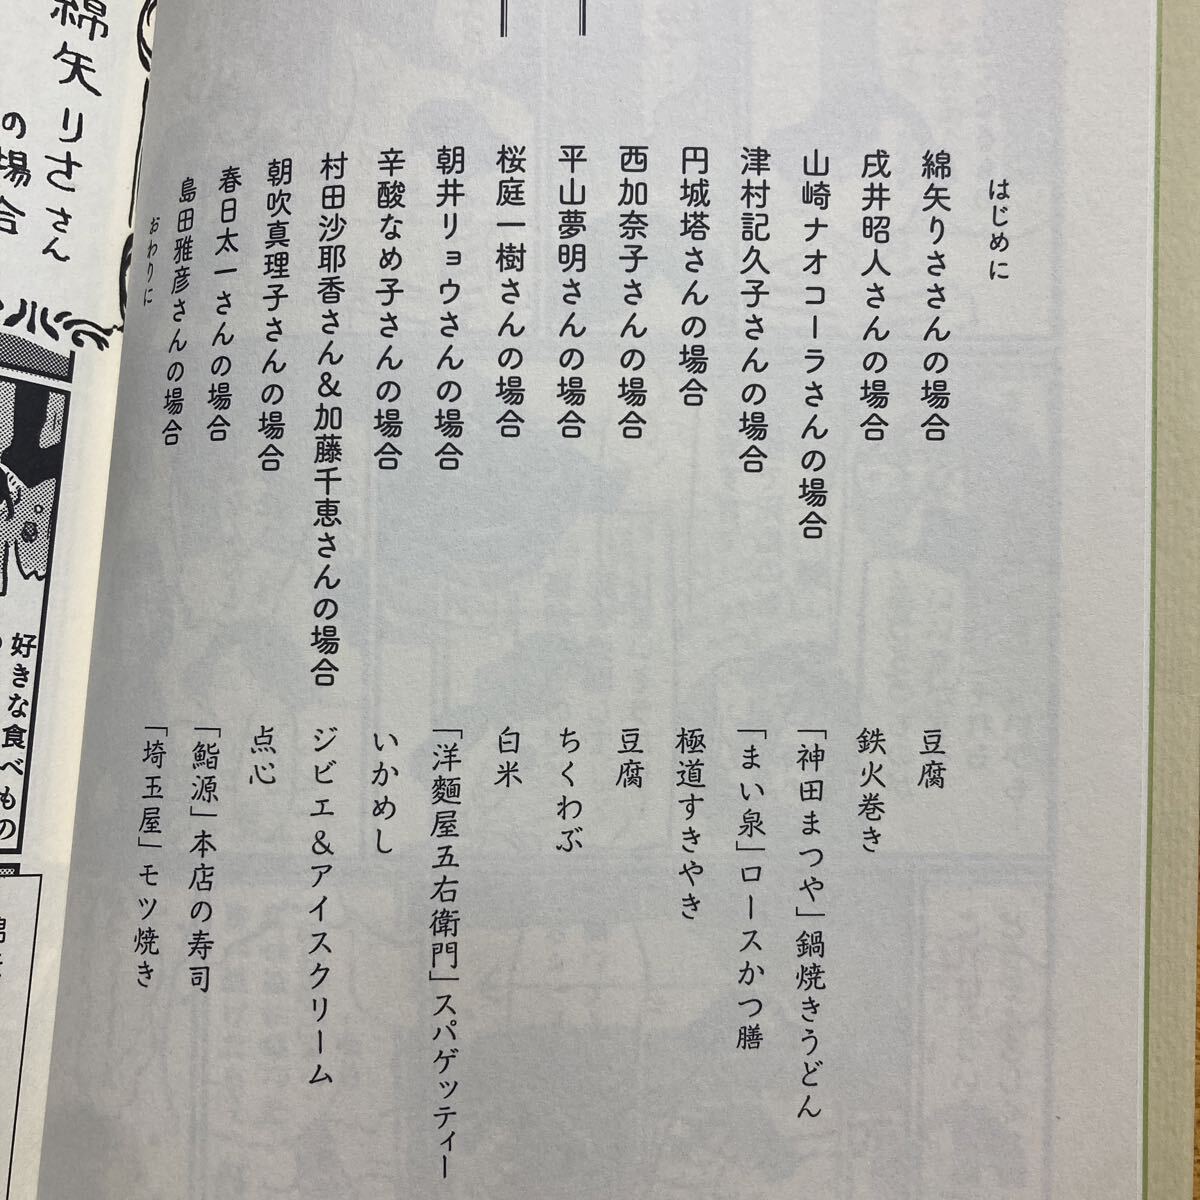 はじめに
綿矢りささんの場合 豆腐
戌井昭人さんの場合 鉄火巻き
山崎ナオコーラさんの場合 「神田まつや」鍋焼きうどん
津村記久子さんの場合 「まい泉」ロースかつ膳
円城塔さんの場合 極道すきやき
西加奈子さんの場合 豆腐
平山夢明さんの場合 ちくわぶ
桜庭一樹さんの場合 白米
朝井リョウさんの場合 「洋麺屋五右衛門」スパゲッティー
辛酸なめ子さんの場合 いかめし
村田沙耶香さん&加藤千恵さんの場合 ジビエ&アイスクリーム
朝吹真理子さんの場合 点心
春日太一さんの場合 「鮨源」本店の寿司
島田雅彦さんの場合 「埼玉屋」モツ焼き
おわりに
綿矢りささん
の場合
好きな食べもの